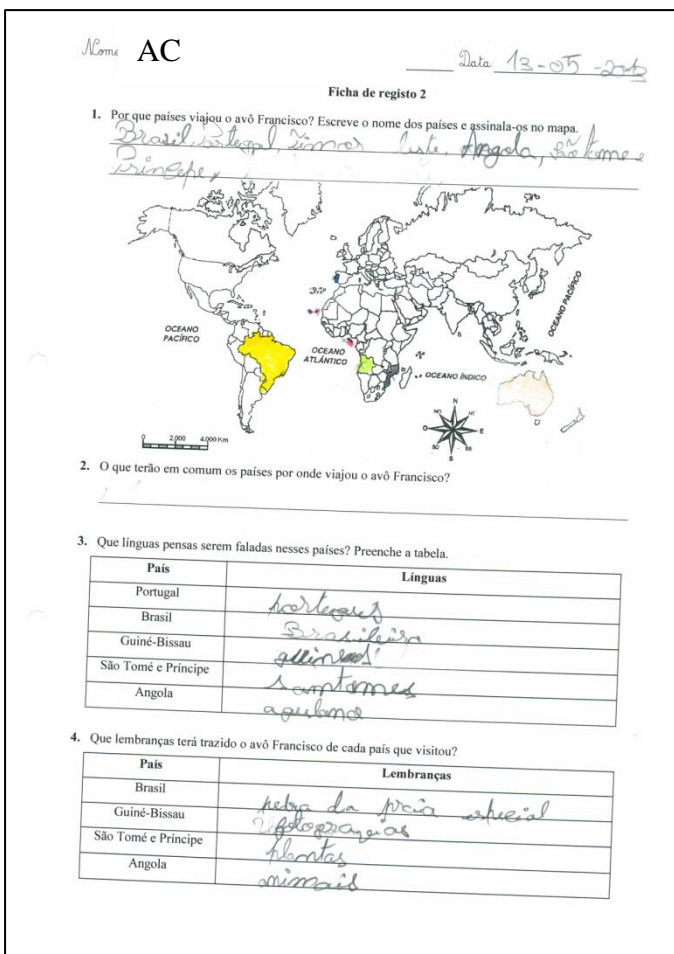 Nome AC Data 13-05-2012
Ficha de registo 2
1. Por que países viajou o avô Francisco? Escreve o nome dos países e assinala-os no mapa.
Brasil, Portegal, Timor leste, Angola, São tome e
Principe,
OCEANO PACÍFICO
OCEANO ATLÂNTICO
OCEANO ÍNDICO
OCEANO PACÍFICO
N
NO NE
O E
SO SE
S
0 2,000 4,000 Km
2. O que terão em comum os países por onde viajou o avô Francisco?
3. Que línguas pensas serem faladas nesses países? Preenche a tabela.
País Línguas
Portugal portegues
Brasil Brasileira
Guiné-Bissau
São Tomé e Príncipe samtomes
Angola agulana
4. Que lembranças terá trazido o avô Francisco de cada país que visitou?
País Lembranças
Brasil pedra da praia especial
Guiné-Bissau
São Tomé e Príncipe plantas
Angola animais